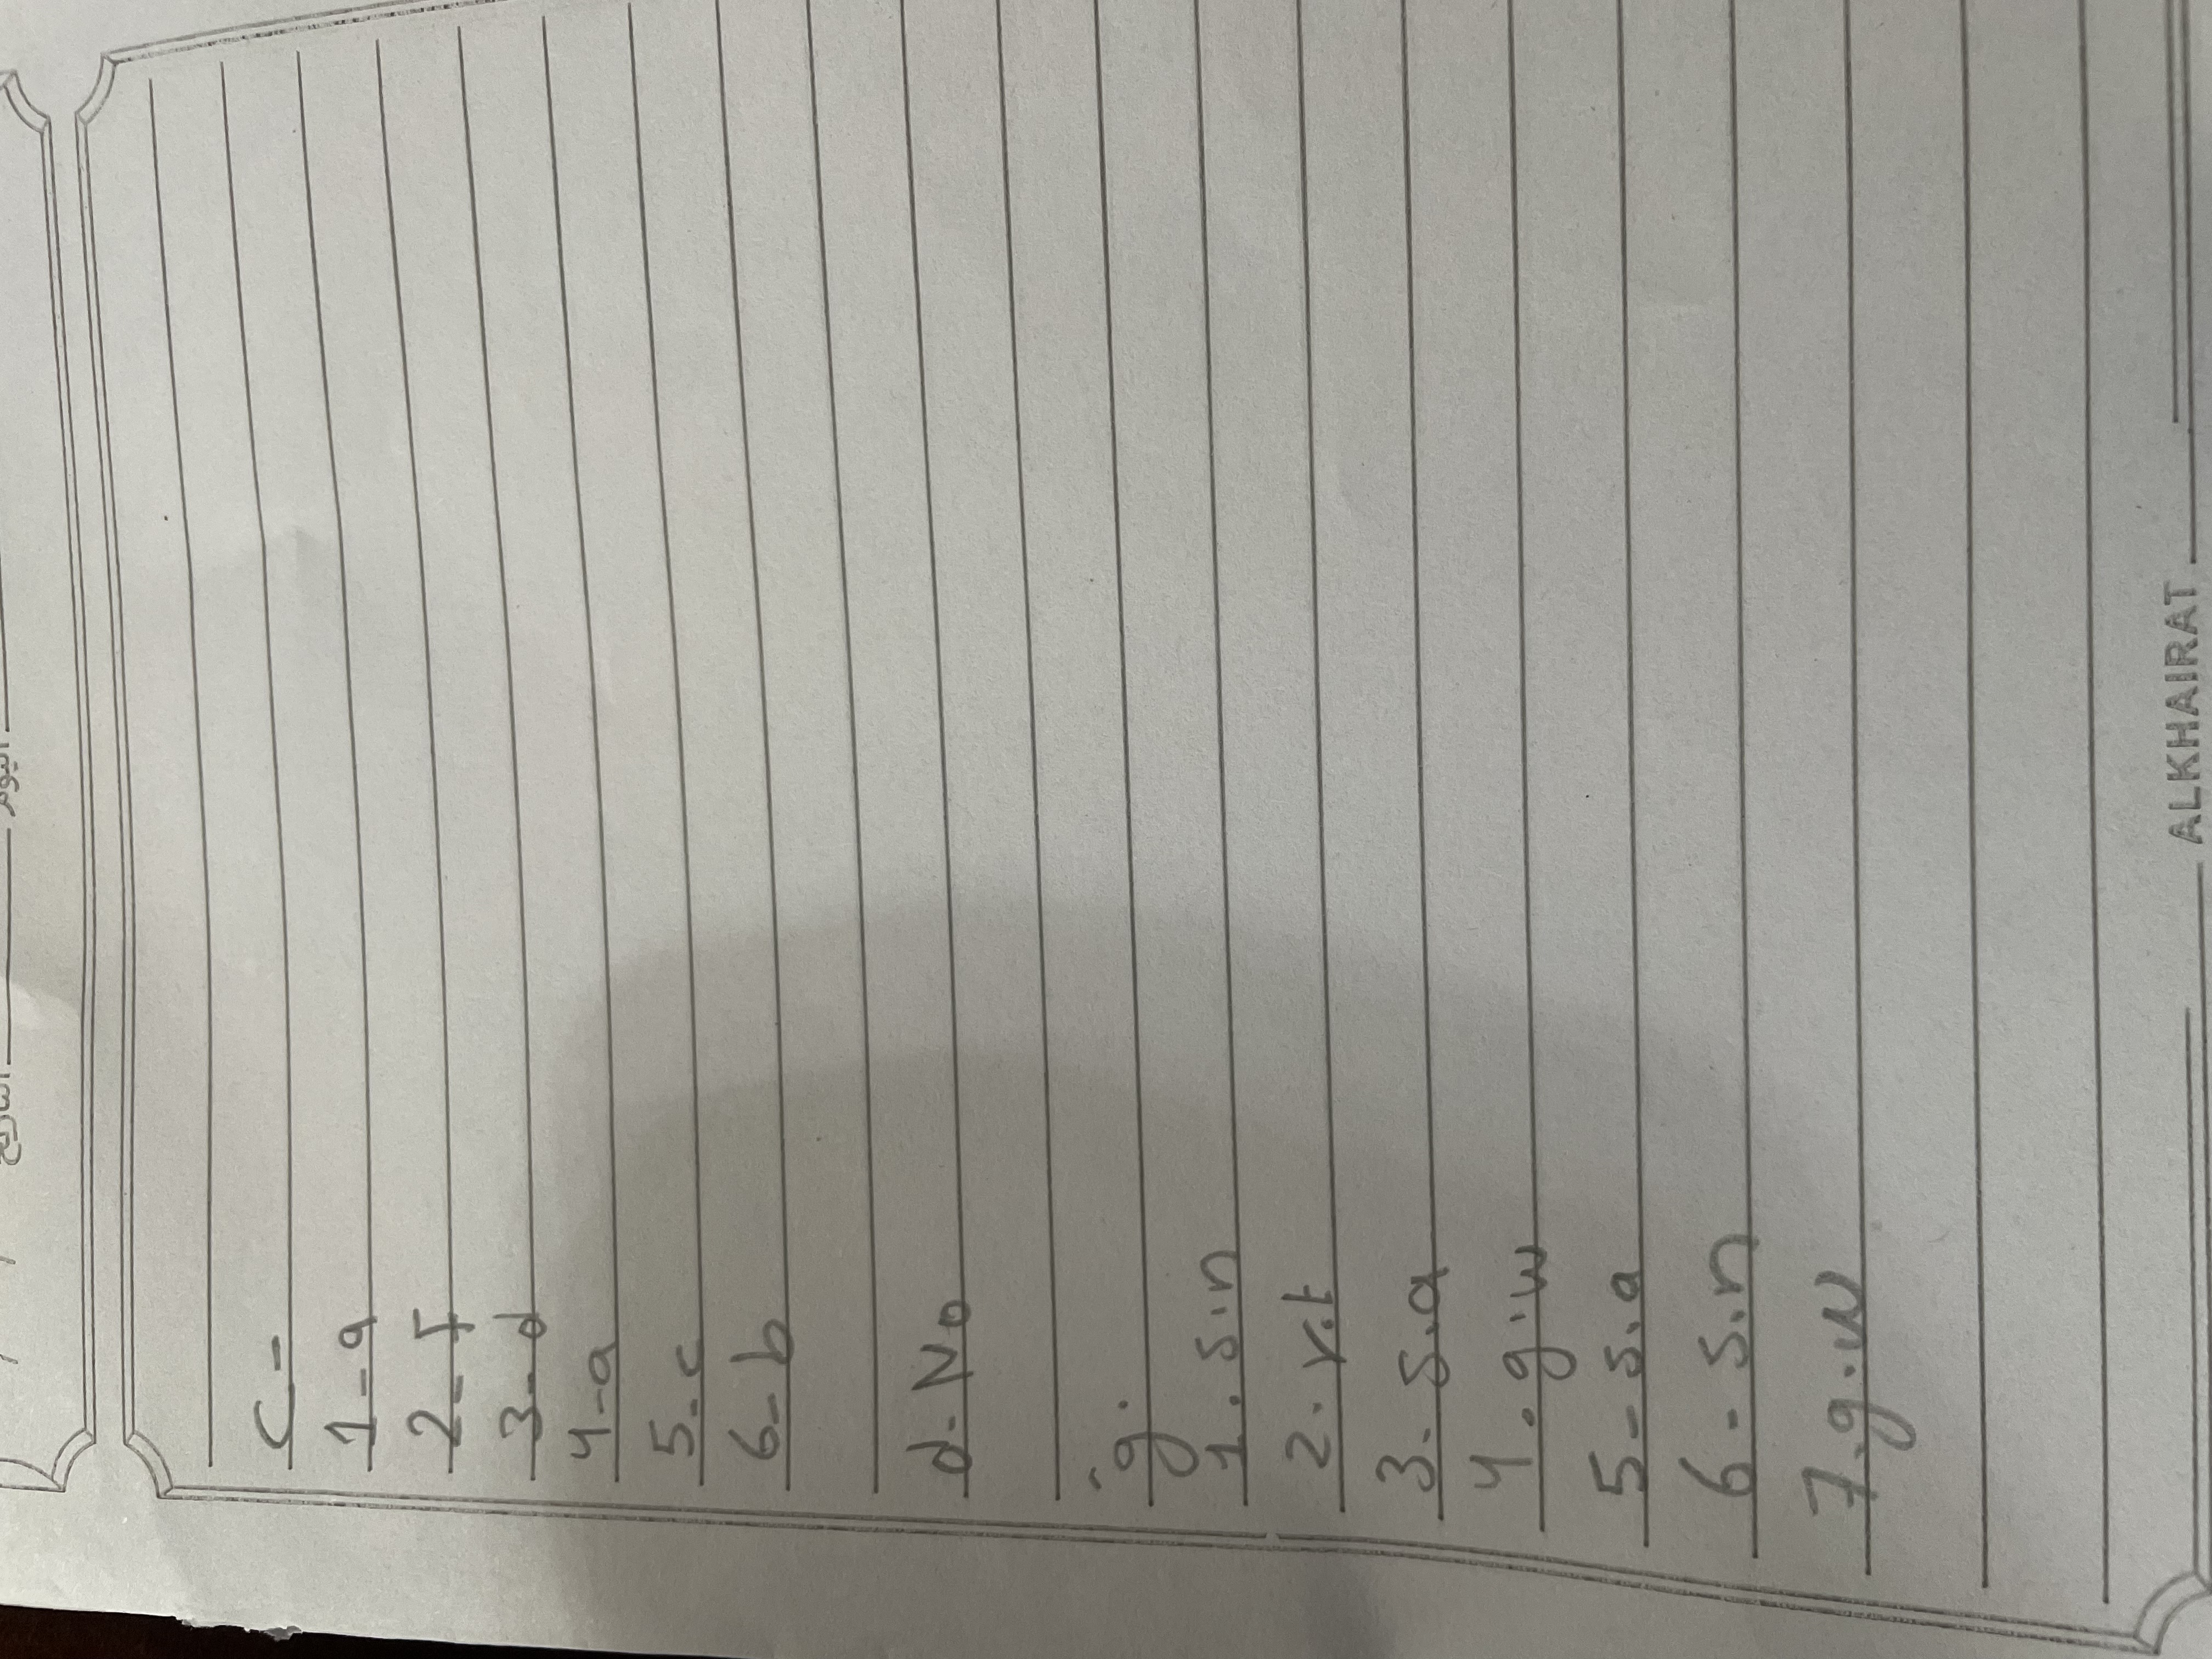 اليوم التاريخ / /
C -
1 - g
2 - f
3 - d
4 - a
5 - c
6 - b
d - No
g.
1. s.n
2. v.t
3 - s.a
4. g.w
5 - s.a
6 - s.n
7. g.w
ALKHAIRAT